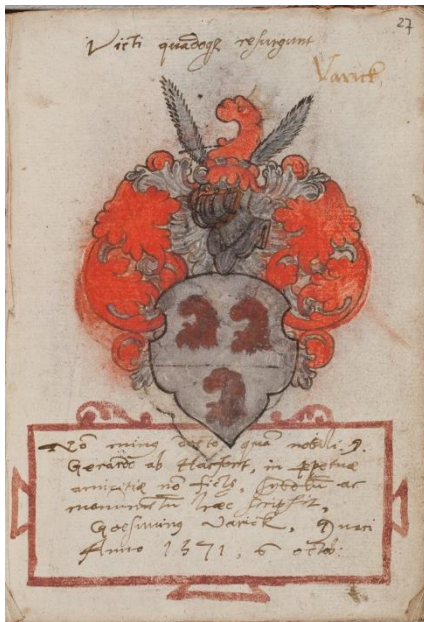 27
Victi quandoqȝ resurgunt
Varick,
Nō minus docto quā nobili. D.
Gerardo ab Hacfort, in ppetuæ
amicitiæ nō fictæ, ac
monumentū hæc scripsit,
Goeswinus Varick,
Anno 1571, 6 octob: